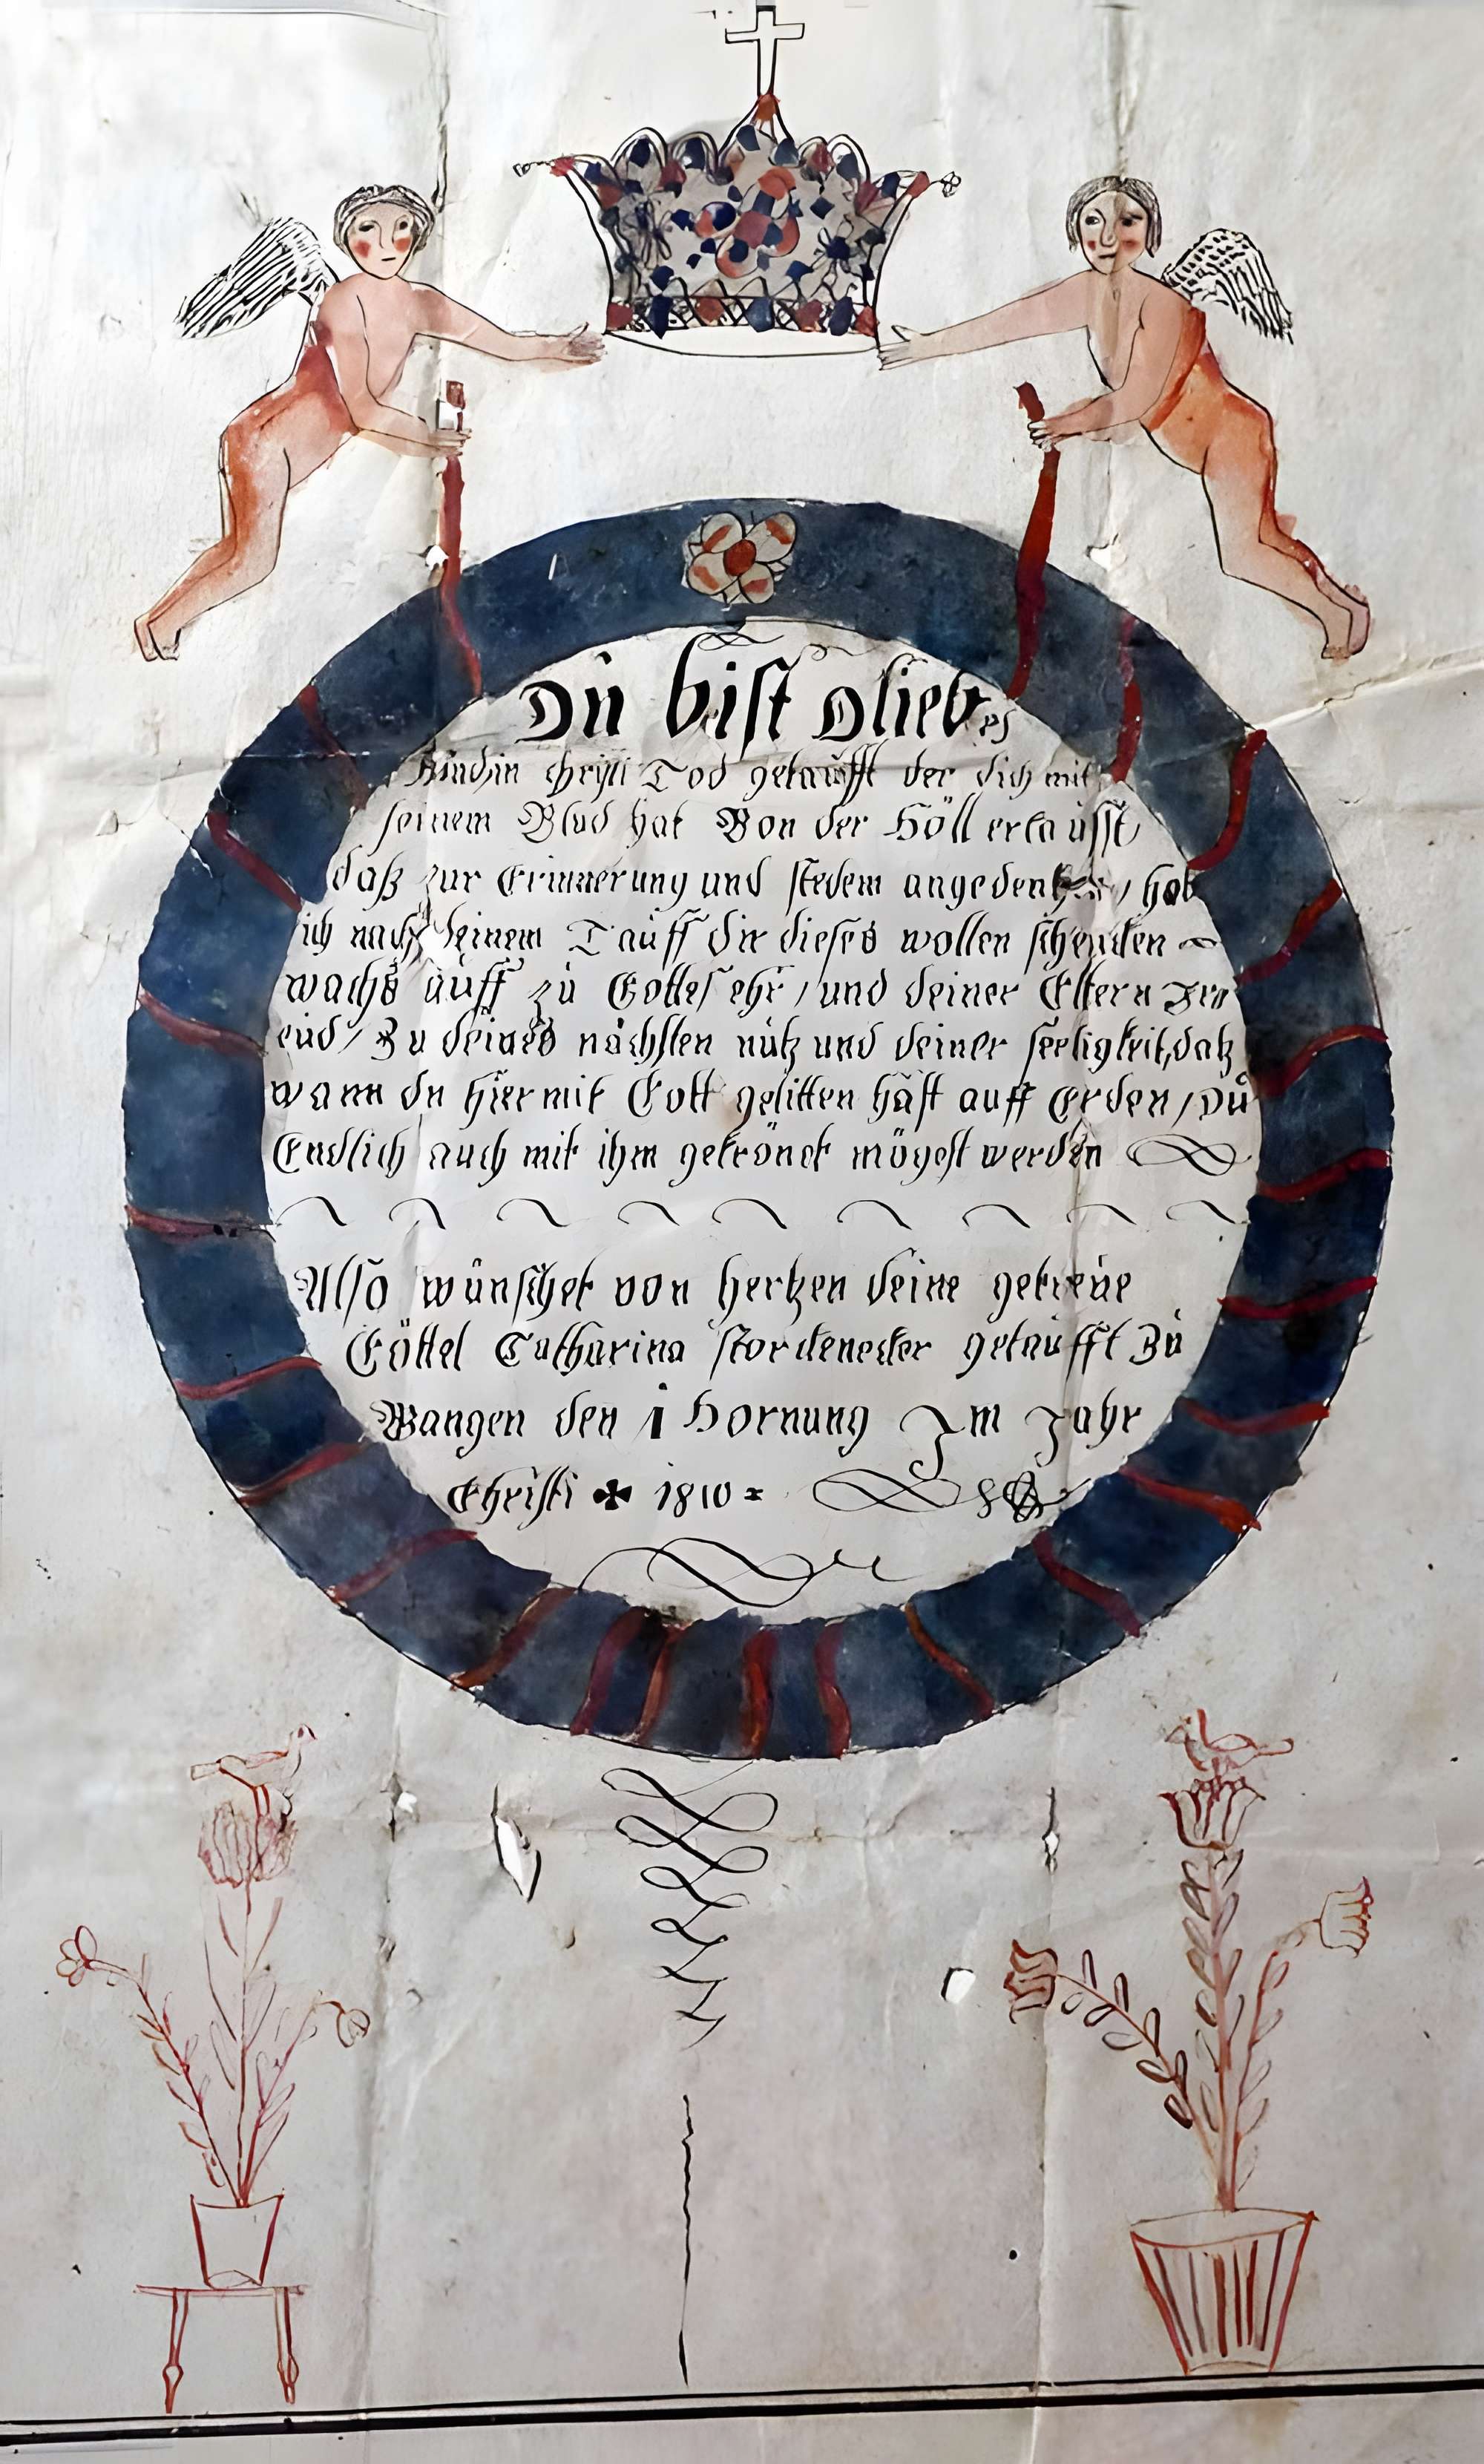 Dŭ bist O lieb es
Kind in Christi Tod getaufft der dich mit
seinem Blud hat Von der Höll erkaŭfft
daß zur Erinnerung und stedem angedencken, hab
ich nach deinem Tauff dir dieses wollen schencken
wachs aŭff zŭ Gottes ehr, und deiner Eltern Fre
eŭd, Zu deines nächsten nŭtz und deiner seeligkeit, datz
wann du hier mit Gott gelitten häst auff Erden, Dŭ
Endlich auch mit ihm gekrönet mögest werden
Also wünschet von hertzen deine getreŭe
Göttel Catharina storckenecker getaŭfft Zŭ
Wangen den 1 Hornung Im Jahr
Christi ✠ 1810 =